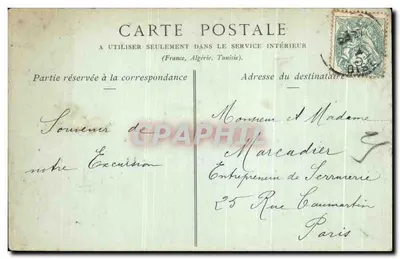 CARTE POSTALE
A UTILISER SEULEMENT DANS LE SERVICE INTÉRIEUR
(France, Algérie, Tunisie).
Partie réservée à la correspondance
Adresse du destinataire
Souvenir de
notre Excursion
Monsieur et Madame
Marcadier
Entrepreneur de Serrurerie
25 Rue Caumartin
Paris
CPAPHIL